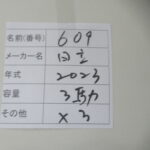 名前(番号) 609
メーカー名 日立
年式 2023
容量 3馬力
その他 ×3